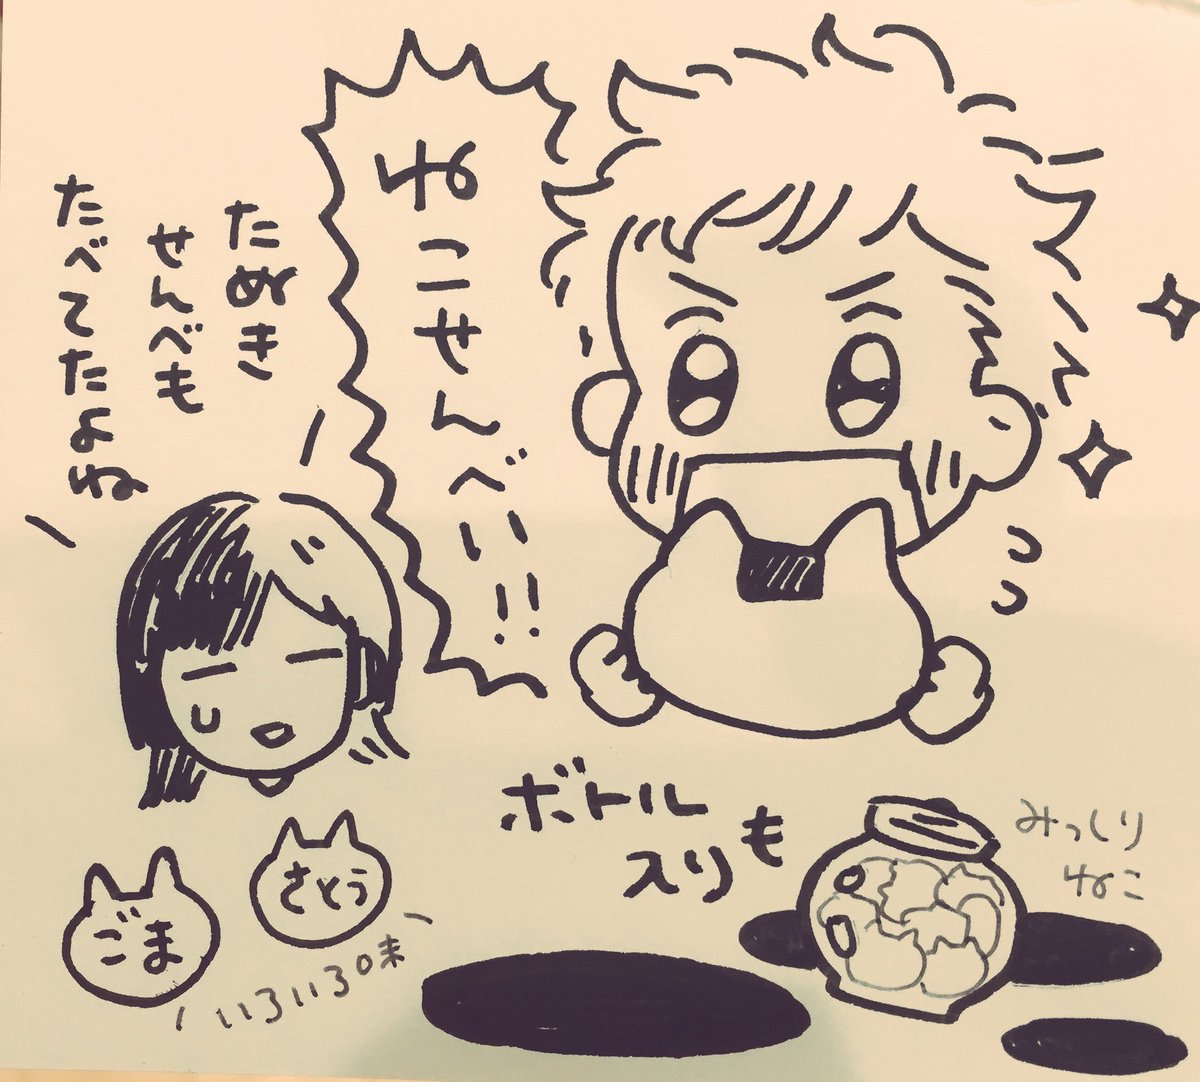 ねこせんべい!!
たぬき
せんべも
たべてたよね
ボトル
入りも
みっしり
ねこ
さとう
ごま
いろいろ味